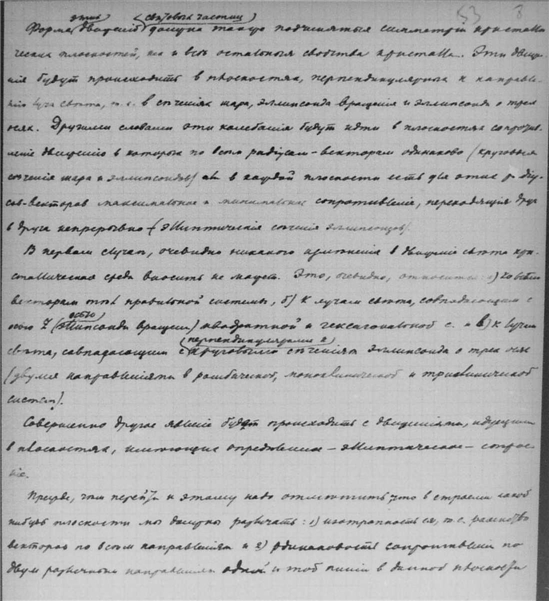 53
этих световых частиц
Форма движений должна также подчиняться симметрии кристалли-
ческих плоскостей, как и все остальные свойства кристалла. Эти движе-
ния будут происходить в плоскостях, перпендикулярных к направле-
нию луча света, т.е. в сечениях шара, эллипсоида вращения и эллипсоида о трех
осях. Другими словами эти колебания будут идти в плоскостях сопротив-
ление движению в которых по всем радіусам-векторам одинаково (круговые
сечения шара и эллипсоидов) в каждой плоскости есть два
сов-векторов максимальное и минимальное сопротивление, переходящия друг
в друга непрерывно (эллиптические сечения эллипсоидов).
В первом случае, очевидно никакого в движение света кри-
сталлическая среда вносить не может. Это, очевидно, относится: а) ко всем
векторам правильной системы, б) к лучам света, совпадающим с
осью
(эллипсоида вращения) квадратной и гексагональной с. и в) к лучам
перпендикулярами к
света, совпадающим с круговыми сечениями эллипсоида о трех осях
(двумя направлениями в ромбической, моноклинической и триклинической
систем).
Совершенно другое явление будет происходить с движениями, идущими
в плоскостях, имеющих определенное - эллиптическое - строе-
ние.
Прежде, чем перейти к этому надо отметить что в строении какой
нибудь плоскости мы должны различать: 1) изотропность ея, т.е. равенство
векторов по всем направлениям и 2) одинаковость сопротивления по
двум различным направлениям одной и той линии в данной плоскости